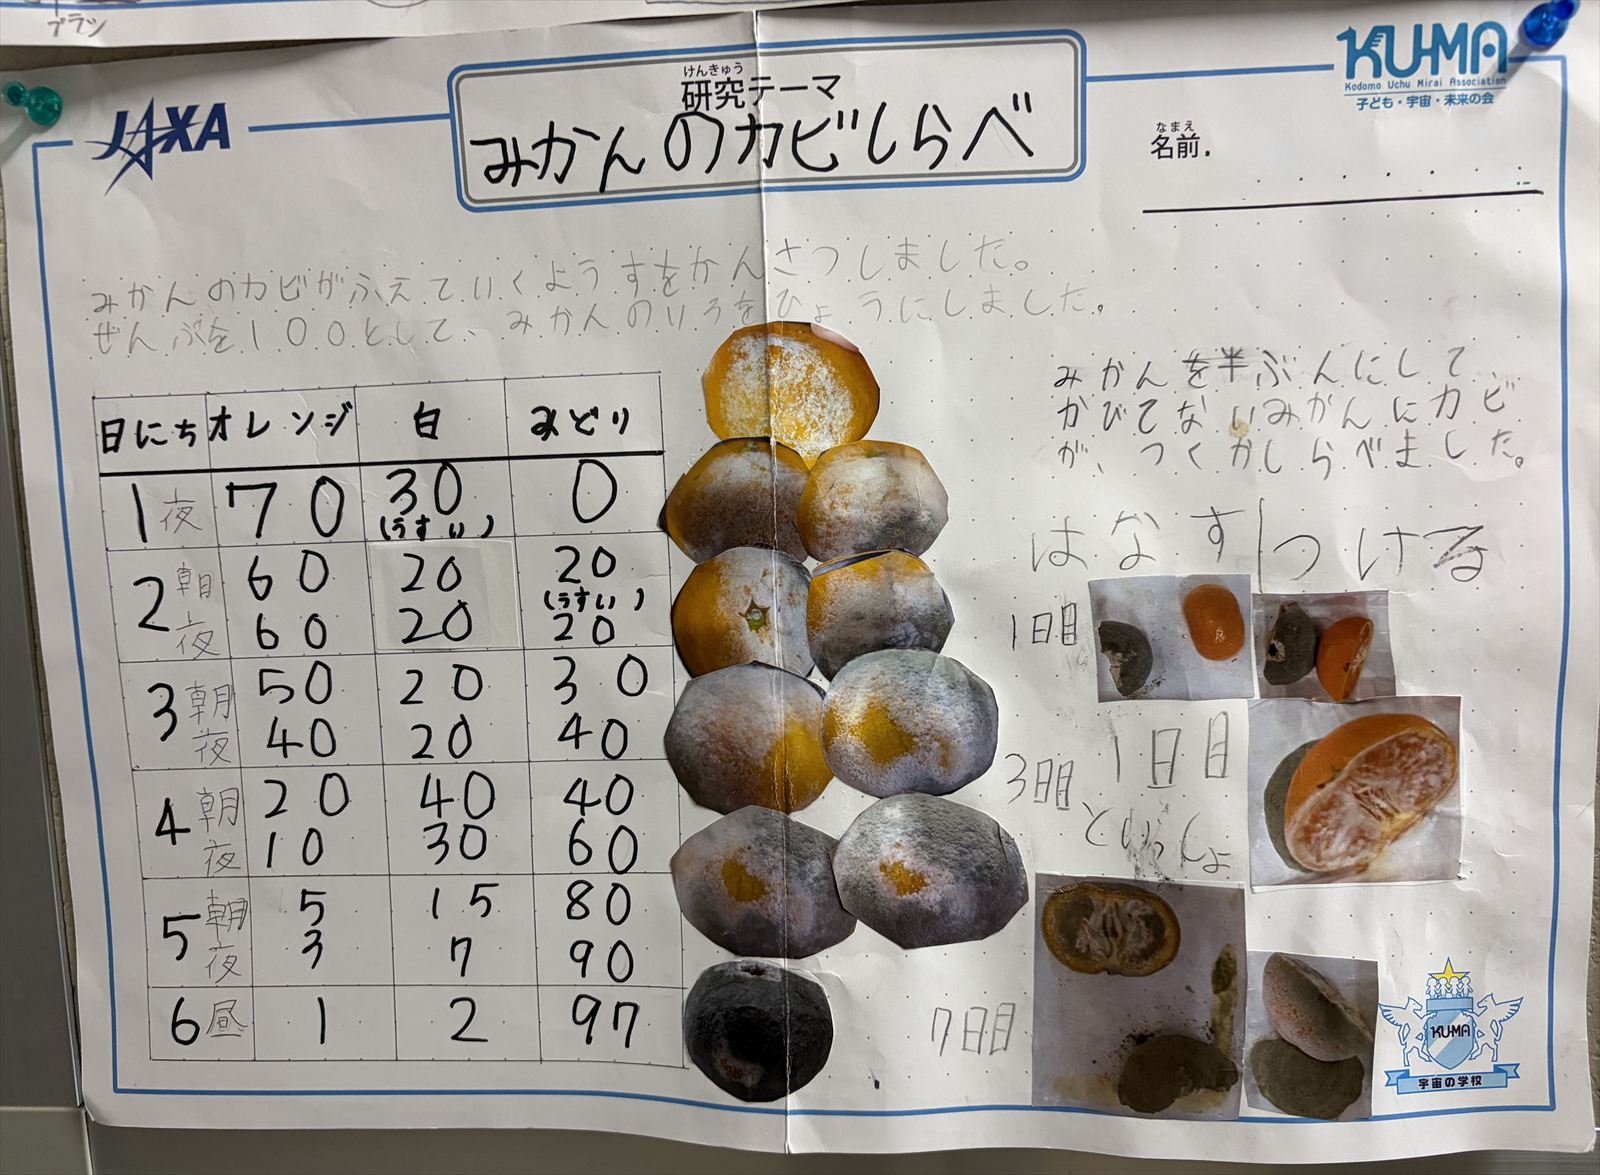 ブラシ
JAXA
けんきゅう
研究テーマ
みかんのカビしらべ
KU-MA
Kodomo Uchu Mirai Association
子ども・宇宙・未来の会
なまえ
名前.
みかんのカビがふえていくようすをかんさつしました。
ぜんぶを100として、みかんのいろをひょうにしました。
日にち オレンジ 白 みどり
1 夜 70 30 (うすい) 0
2 朝 60 20 20 (うすい)
夜 60 20 20
3 朝 50 20 30
夜 40 20 40
4 朝 20 40 40
夜 10 30 60
5 朝 5 15 80
夜 3 7 90
6 昼 1 2 97
みかんを半ぶんにして
かびてないみかんにカビ
が、つくかしらべました。
はなす つける
1日目
3日目 1日目
といっしょ
7日目
KU-MA
宇宙の学校